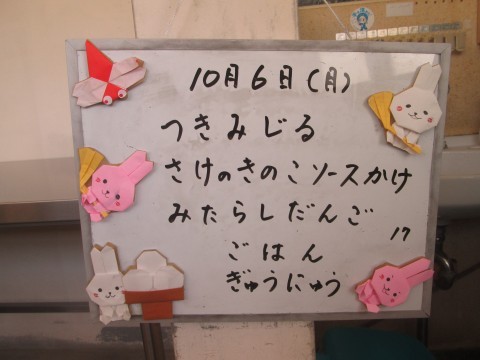 10月6日(月)
つきみじる
さけのきのこソースかけ
みたらしだんご
17
ごはん
ぎゅうにゅう